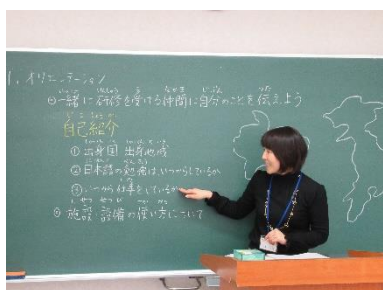 1. オリエンテーション
◎一緒に研修を受ける仲間に自分のことを伝えよう
自己紹介
① 出身国 出身地域
② 日本語の勉強は、いつからしているか
③ いつから仕事をしているか
◎ 施設・設備の使い方について